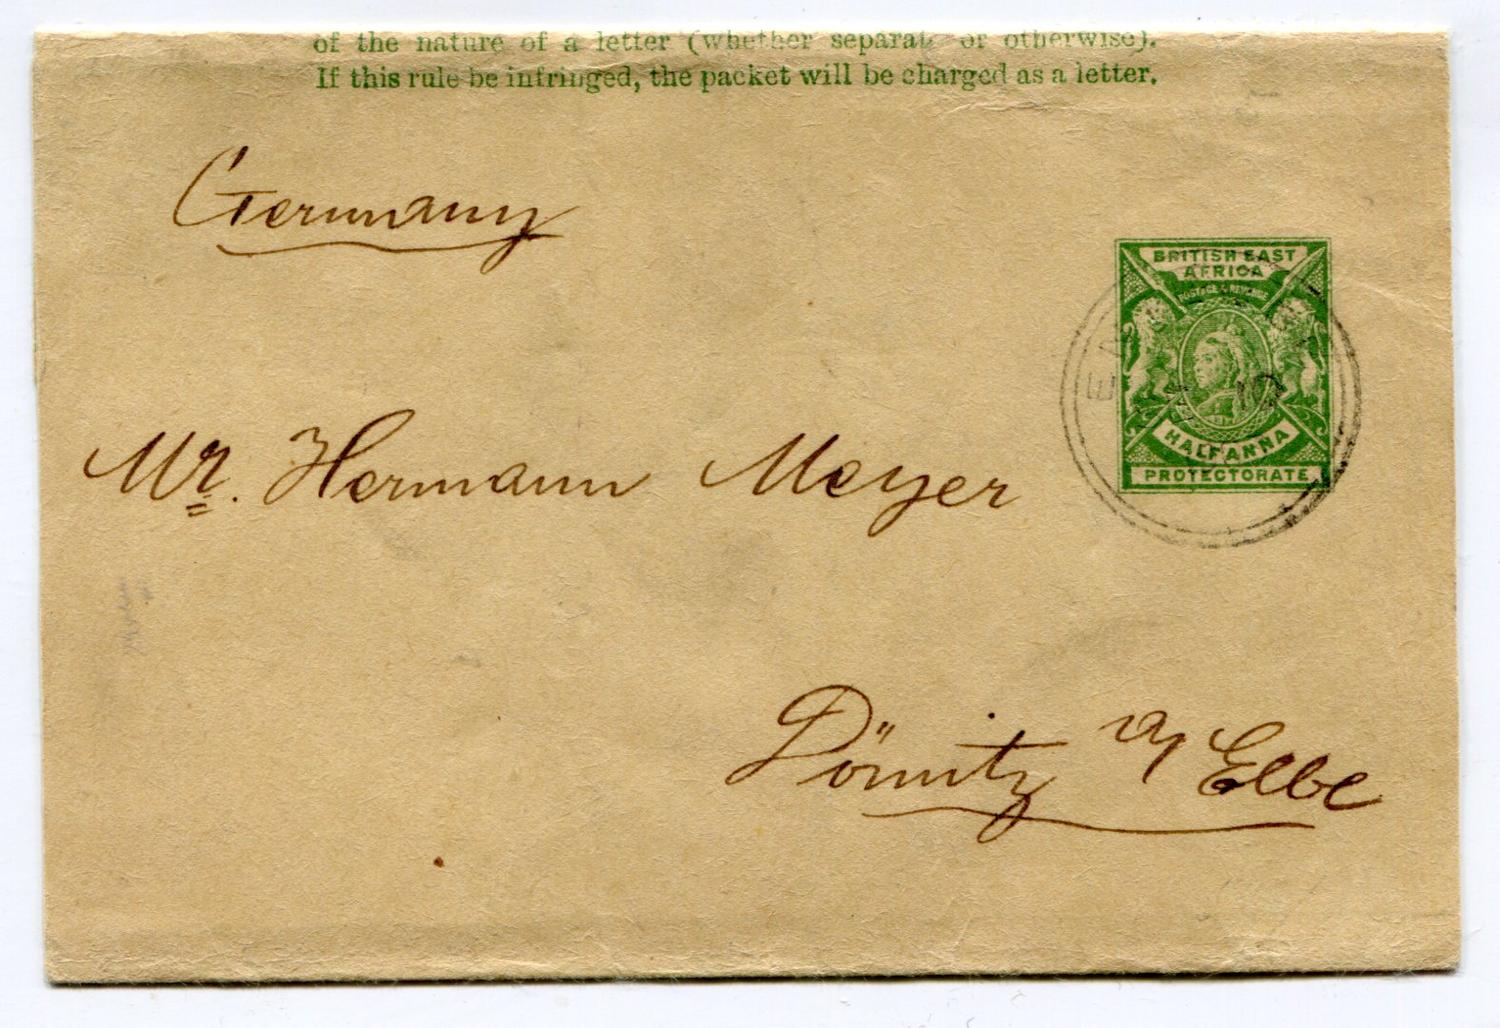 of the nature of a letter (whether separate or otherwise).
If this rule be infringed, the packet will be charged as a letter.
Germany
BRITISH EAST
AFRICA
POSTAGE & REVENUE
HALF ANNA
PROTECTORATE
Mr. Hermann Meyer
Dömitz a/ Elbe